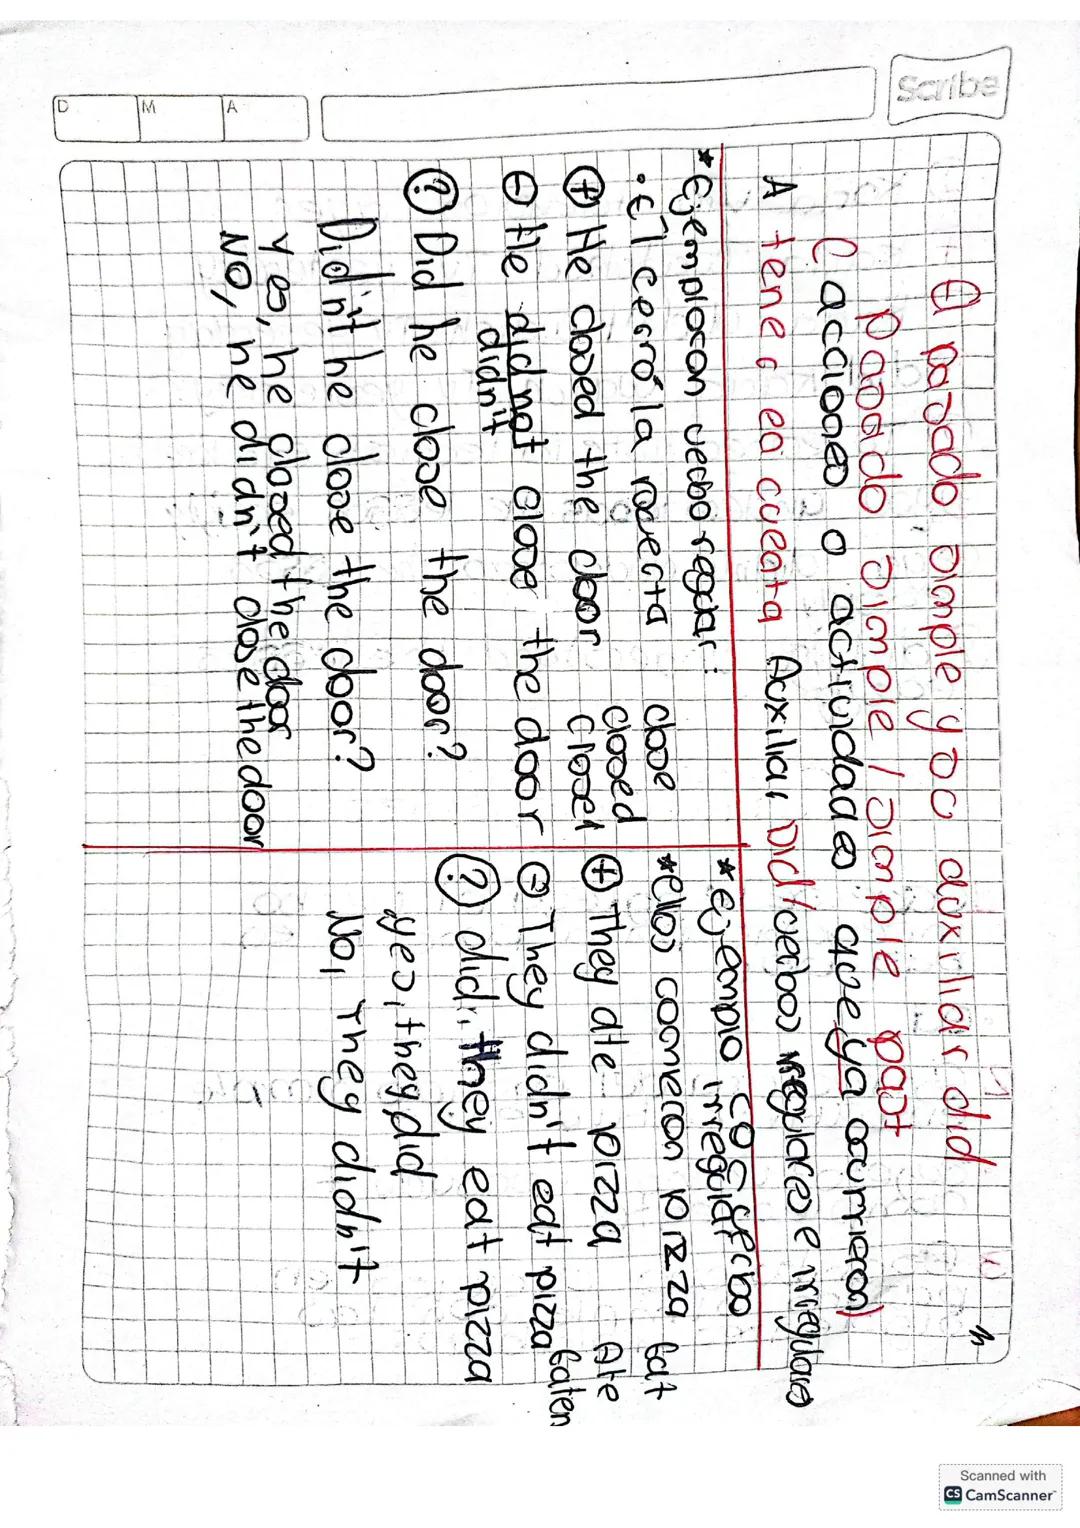 El pasado simple y su auxiliar did
pasado simple / simple past
(acciones o actividades que ya ocurrieron)
A tener en cuenta Auxiliar Did / verbos regulares e irregulares
*Ejemplo con verbo regular:
.Él cerró la puerta
close
closed
closed
+ He closed the door
- He did not close the door
didn't
? Did he close the door?
Didn't he close the door?
Yes, he closed the door
NO, he didn't close the door
*ejemplo con verbo
irregular
*ellos comieron pizza
Eat
Ate
Eaten
+ They ate pizza
- They didn't eat pizza
? did they eat pizza
yes, they did
No, They didn't
Scribe
D
M
A
Scanned with
CS CamScanner